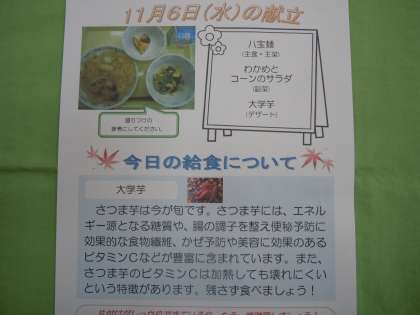 11月6日(水)の献立
八宝麺
(主食・主菜)
わかめと
コーンのサラダ
(副菜)
大学芋
(デザート)
盛りつけの
参考にしてください。
今日の給食について
大学芋
さつま芋は今が旬です。さつま芋には、エネル
ギー源となる糖質や、腸の調子を整え便秘予防に
効果的な食物繊維、かぜ予防や美容に効果のある
ビタミンCなどが豊富に含まれています。また、
さつま芋のビタミンCは加熱しても壊れにくい
という特徴があります。残さず食べましょう!